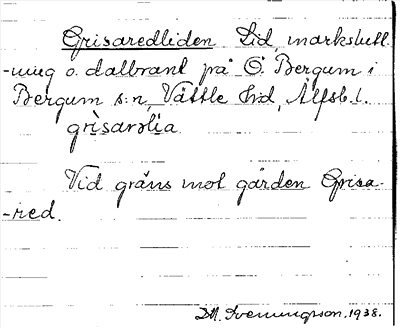 Grisaredliden Lid, markslutt-
-ning o. dalbrant på Ö. Bergum i
Bergum s:n, Vättle hd, Älfsb. l.
grìsarəlia
Vid gräns mot gården Grisa-
-red.
D.A. Svenningson. 1938.